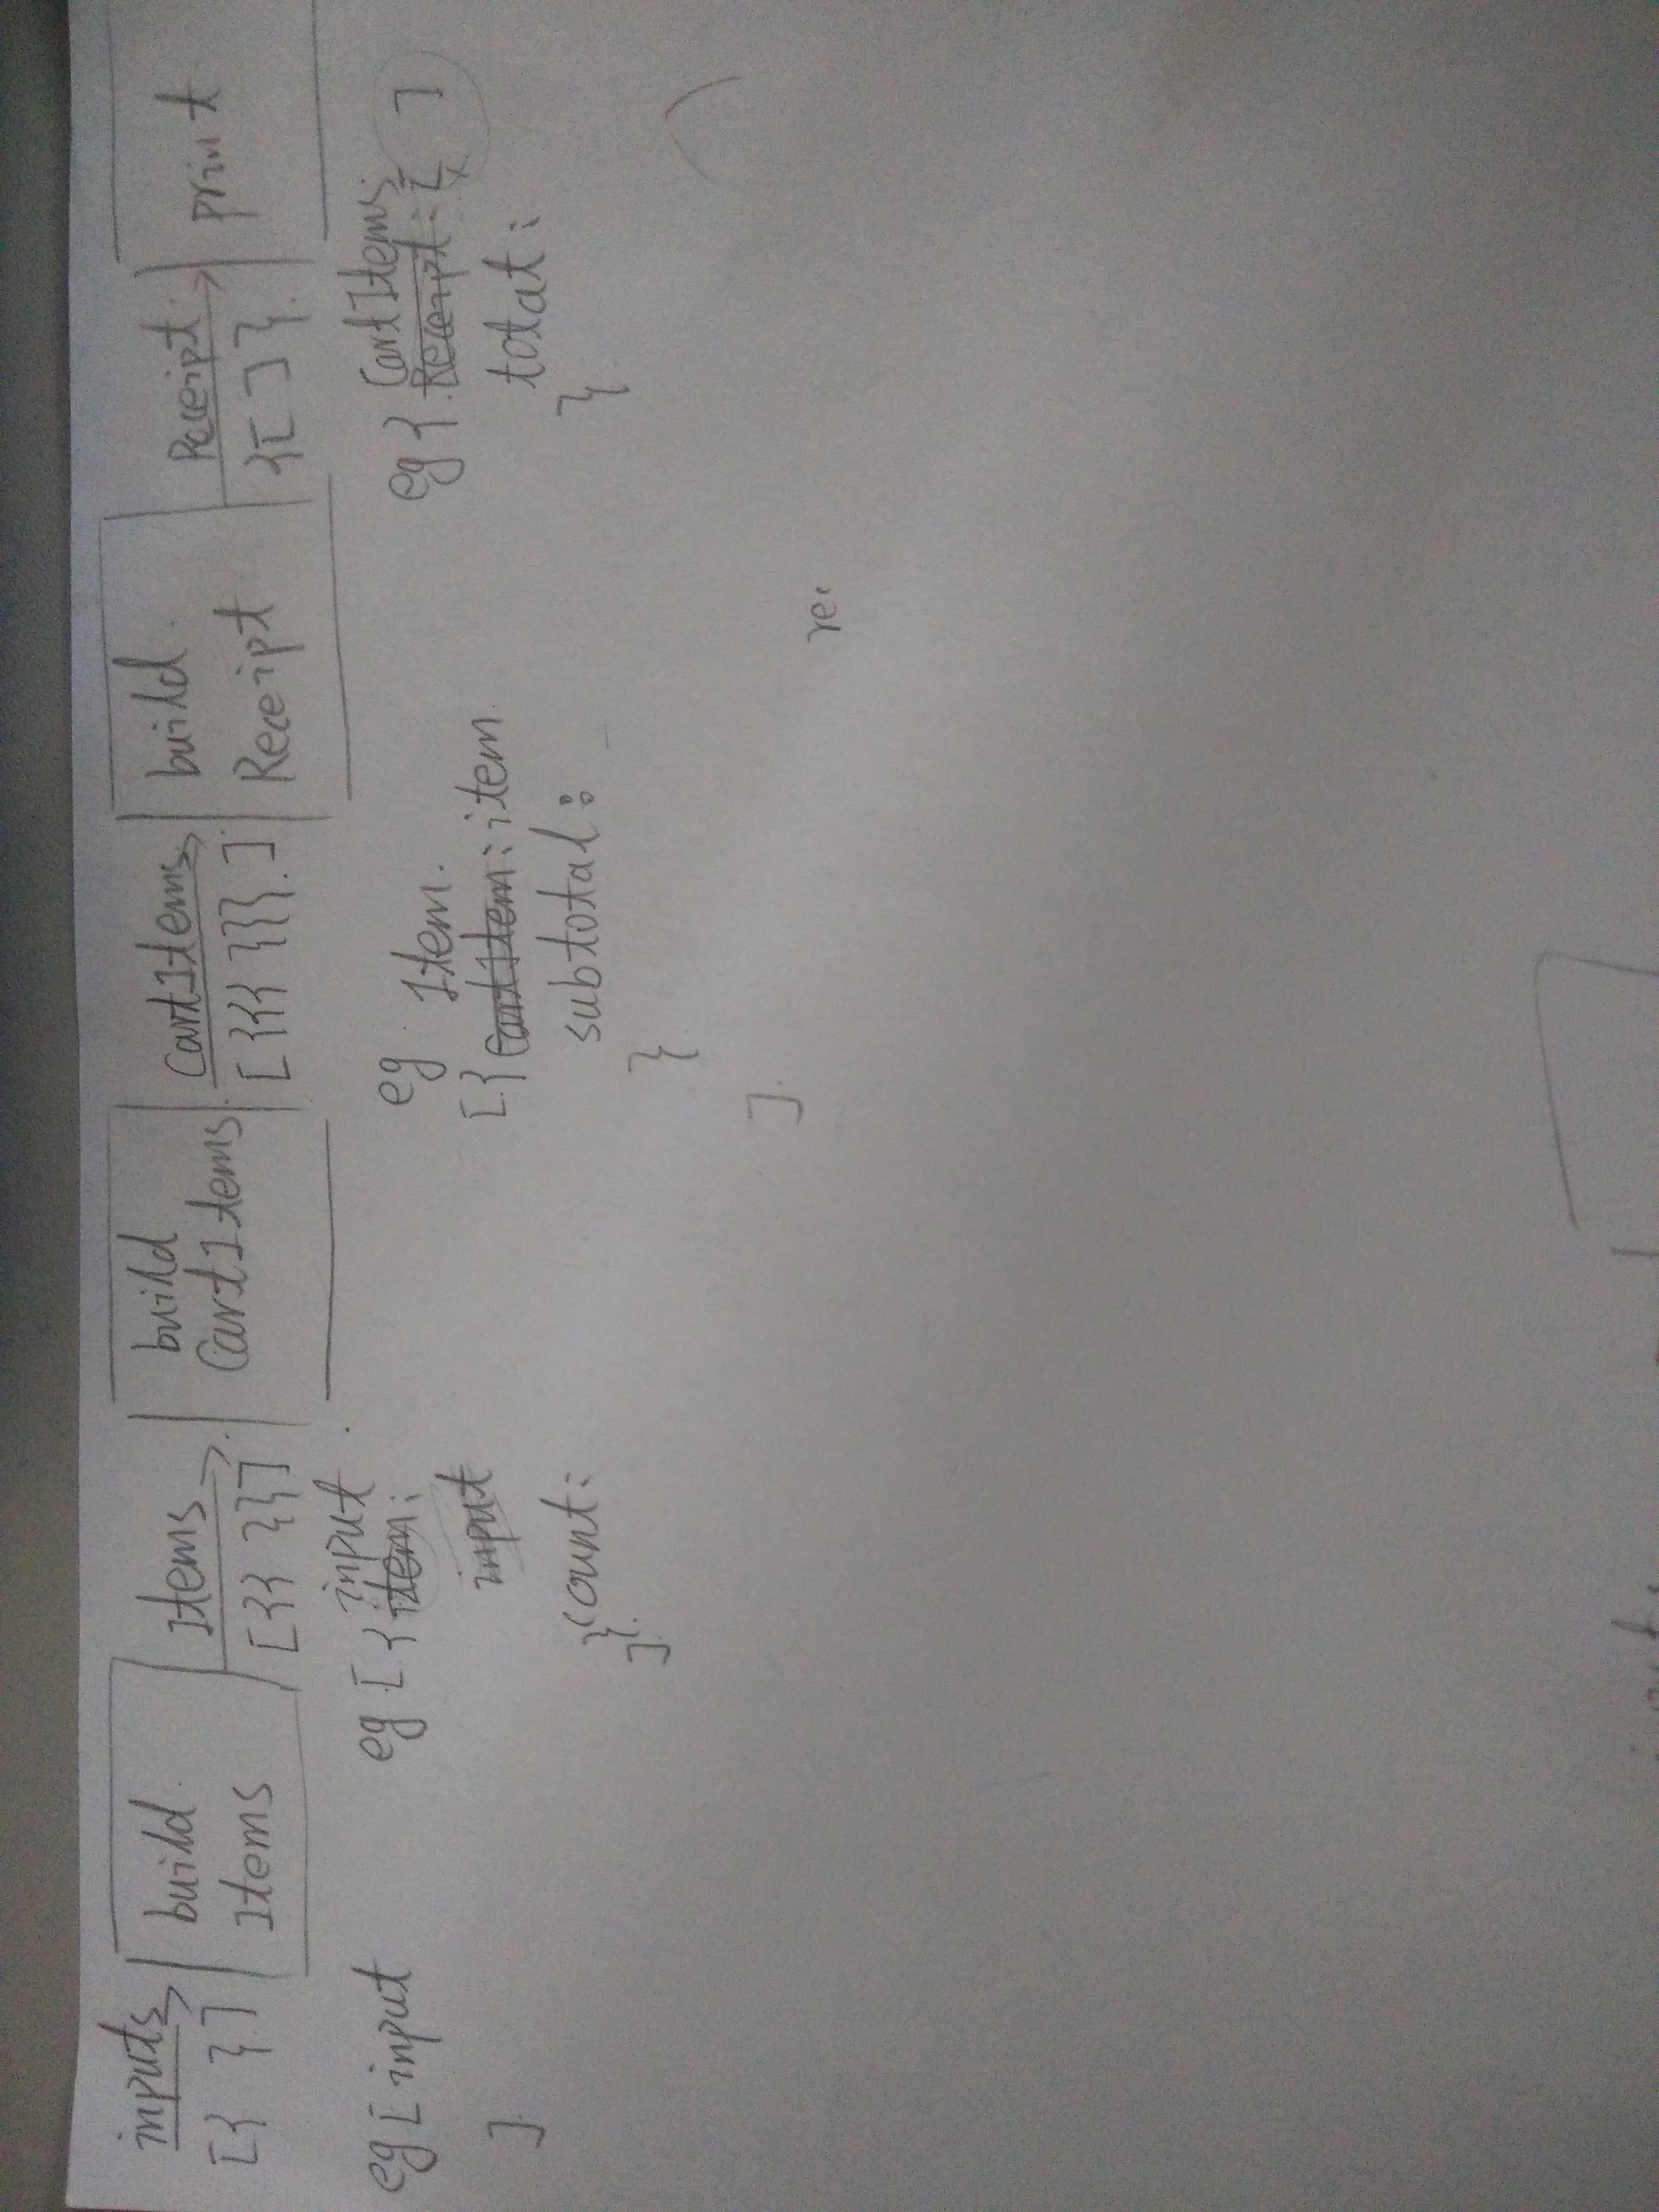 inputs
[{ }]
build
Items
Items
[{{ }}]
build
CartItems
CartItems
[{{{ }}}]
build
Receipt
Receipt
{[ ]}
print
eg [ input
]
eg [ { input
item:
input
count:
}
]
eg
Item
[{ CartItem: item
subtotal:
}
]
eg { CartItems
Receipt: [ ]
total:
}
re: